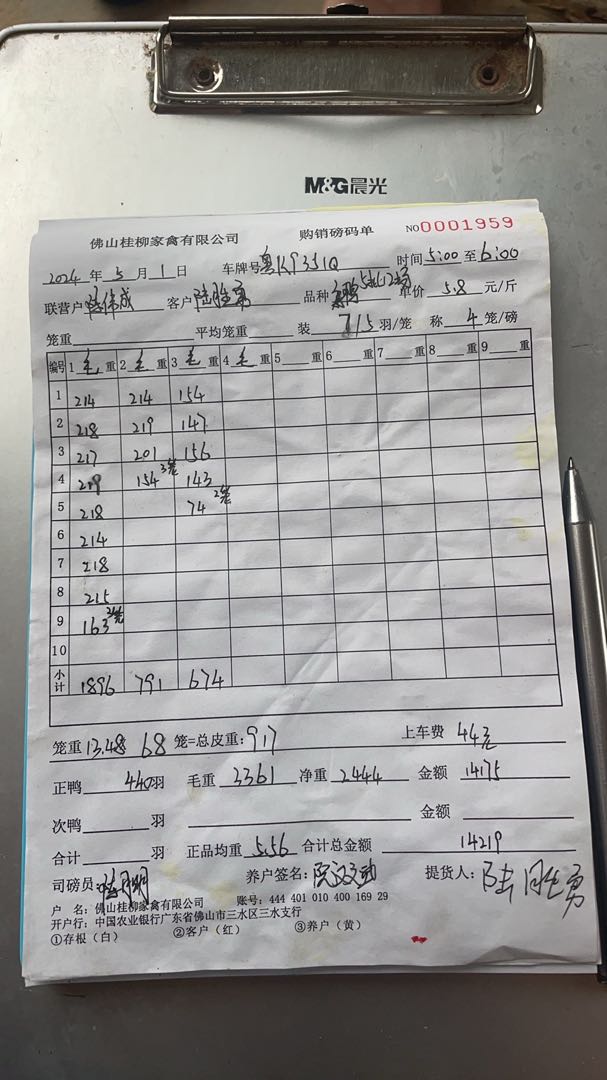 M&G晨光
佛山桂柳家禽有限公司 购销磅码单 NO0001959
2024 年 5 月 1 日 车牌号 351Q 时间 5:00 至 6:00
联营户 伟成 客户 陆胜勇 品种 单价 5.8 元/斤
笼重 平均笼重 装 7/5 羽/笼 称 4 笼/磅
编号 1 毛 重 2 毛 重 3 毛 重 4 毛 重 5 重 6 重 7 重 8 重 9 重
1 214 214 154
2 218 219 147
3 217 201 156
4 219 154 3笼 143
5 218 74 2笼
6 214
7 218
8 215
9 163
10
小计 1896 791 674
笼重 13.48 68 笼=总皮重: 917 上车费 44元
正鸭 440 羽 毛重 3361 净重 2444 金额 14175
次鸭 羽 金额
合计 羽 正品均重 5.56 合计总金额 14219
司磅员: 养户签名: 提货人:
户 名: 佛山桂柳家禽有限公司 账号: 444 401 010 400 169 29
开户行: 中国农业银行广东省佛山市三水区三水支行
①存根（白） ②客户（红） ③养户（黄）